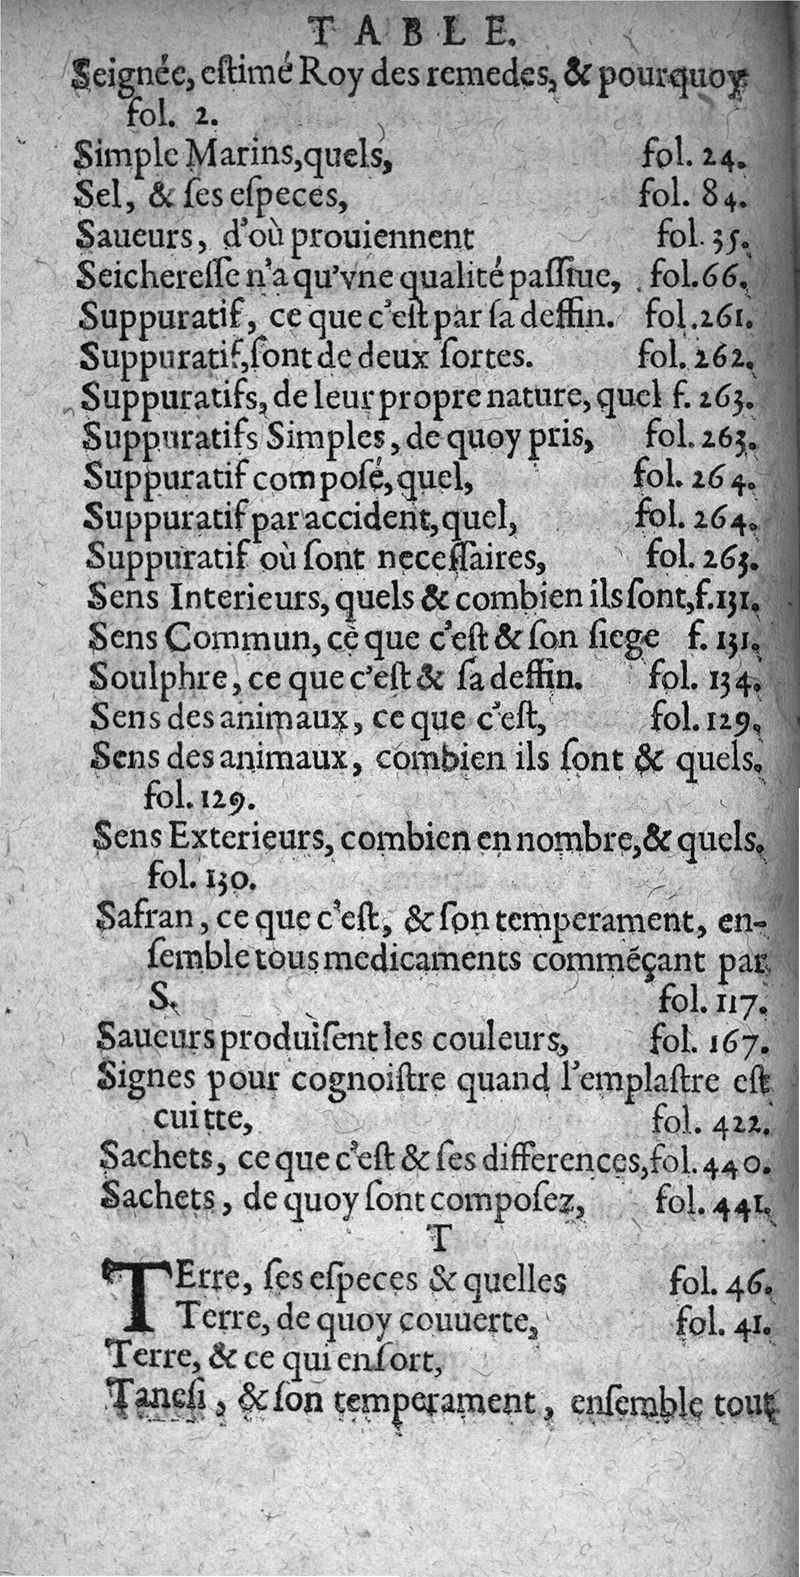 TABLE.
Seignée, estimé Roy des remedes, & pourquoy
fol. 2.
Simple Marins, quels, fol. 24.
Sel, & ſes eſpeces, fol. 84.
Saueurs, d'où prouiennent fol. 35.
Seichereſſe n'a qu'vne qualité paſſiue, fol. 66.
Suppuratif, ce que c'eſt par ſa deffin. fol. 261.
Suppuratif, ſont de deux ſortes. fol. 262.
Suppuratifs, de leur propre nature, quel f. 263.
Suppuratifs Simples, de quoy pris, fol. 263.
Suppuratif compoſé, quel, fol. 264.
Suppuratif par accident, quel, fol. 264.
Suppuratif où ſont neceſſaires, fol. 263.
Sens Interieurs, quels & combien ils ſont, f. 131.
Sens Commun, ce que c'eſt & ſon ſiege f. 131.
Soulphre, ce que c'eſt & ſa deffin. fol. 134.
Sens des animaux, ce que c'eſt, fol. 129.
Sens des animaux, combien ils ſont & quels.
fol. 129.
Sens Exterieurs, combien en nombre, & quels.
fol. 130.
Safran, ce que c'eſt, & ſon temperament, en-
ſemble tous medicaments comméçant par
S. fol. 117.
Saueurs produiſent les couleurs, fol. 167.
Signes pour cognoiſtre quand l'emplaſtre eſt
cuitte, fol. 422.
Sachets, ce que c'eſt & ſes differences, fol. 440.
Sachets, de quoy ſont compoſez, fol. 441.
T
TErre, ſes eſpeces & quelles fol. 46.
Terre, de quoy couuerte, fol. 41.
Terre, & ce qui en ſort,
Taneſi, & ſon temperament, enſemble tout